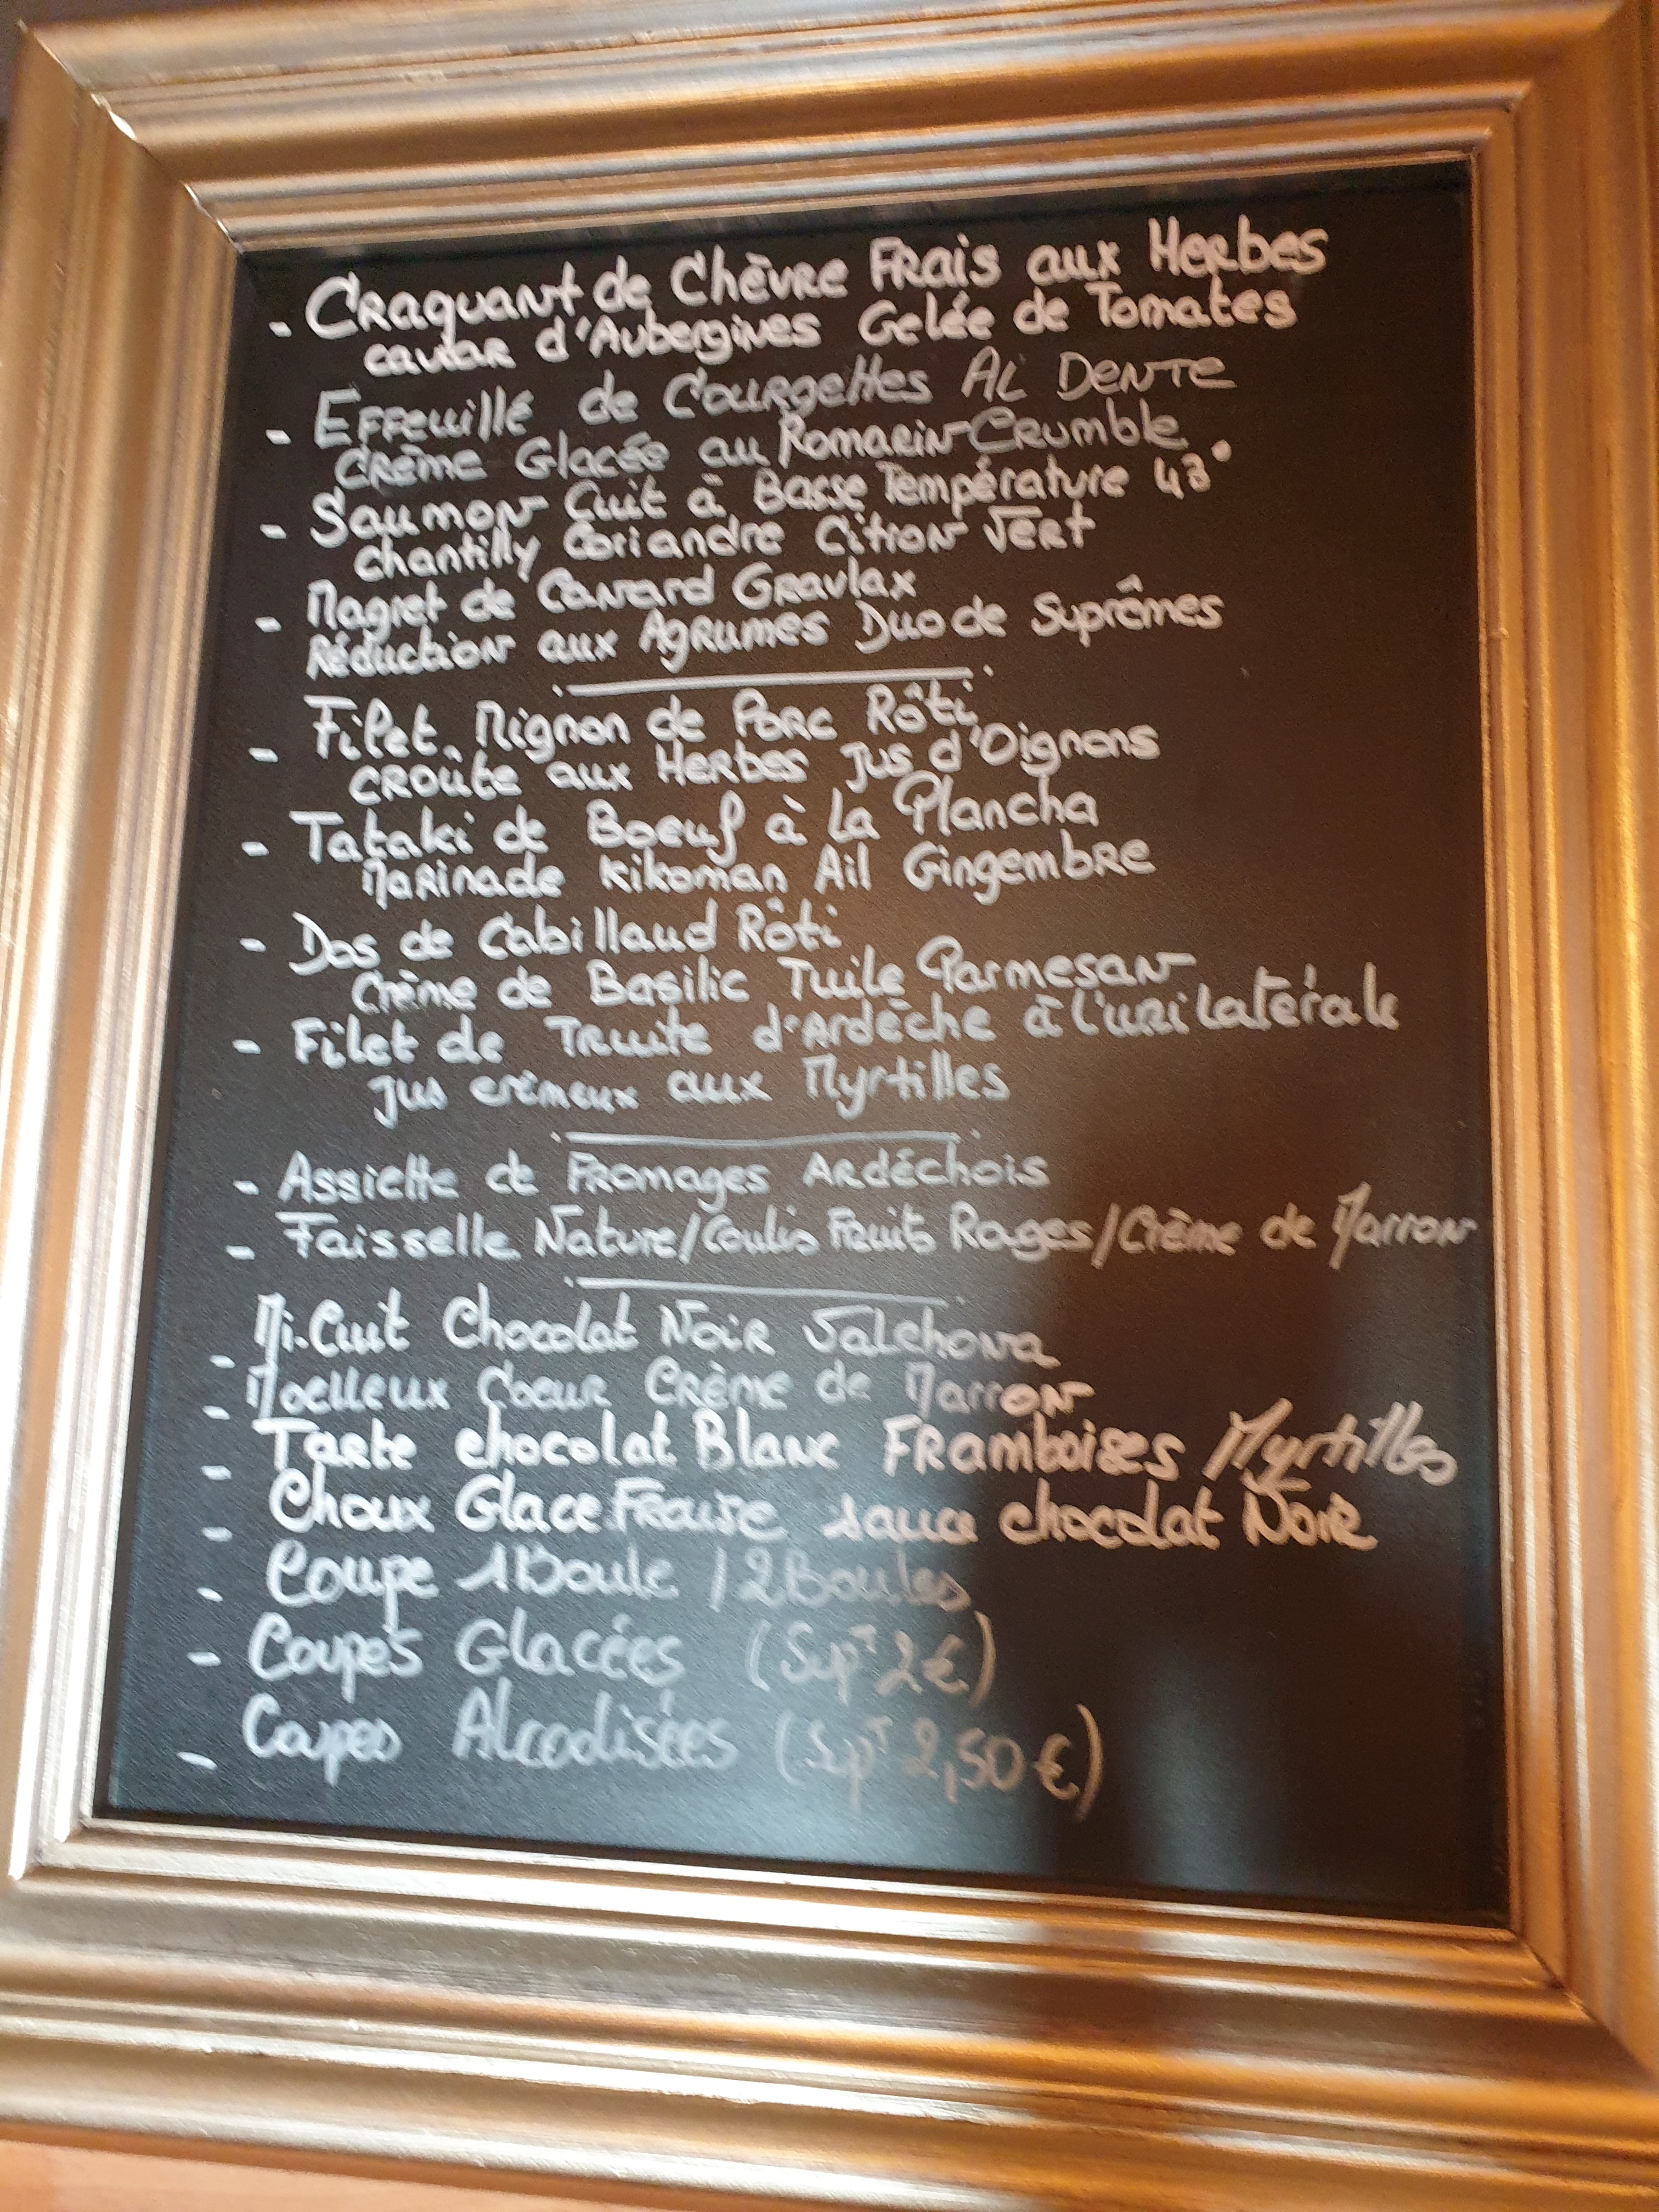 - Craquant de Chèvre Frais aux Herbes
caviar d'Aubergines Gelée de Tomates
- Effeuillé de Courgettes AL DENTE
Crème Glacée au Romarin Crumble
- Saumon Cuit à Basse Température 43°
chantilly Coriandre Citron Vert
- Magret de Canard Gravlax
Réduction aux Agrumes Duo de Suprêmes
- Filet Mignon de Porc Rôti
croûte aux Herbes Jus d'Oignons
- Tataki de Boeuf à la Plancha
Marinade Kikoman Ail Gingembre
- Dos de Cabillaud Rôti
Crème de Basilic Tuile Parmesan
- Filet de Truite d'Ardèche à l'unilatérale
Jus crémeux aux Myrtilles
- Assiette de Fromages Ardéchois
- Faisselle Nature/Coulis Fruits Rouges/Crème de Marron
- Mi-Cuit Chocolat Noir Valrhona
- Moelleux Coeur Crème de Marron
- Tarte chocolat Blanc Framboises Myrtilles
- Choux Glace Fraise sauce chocolat Noir
- Coupe 1 Boule / 2 Boules
- Coupes Glacées (Sup^T 2€)
- Coupes Alcoolisées (Sup^T 2,50€)